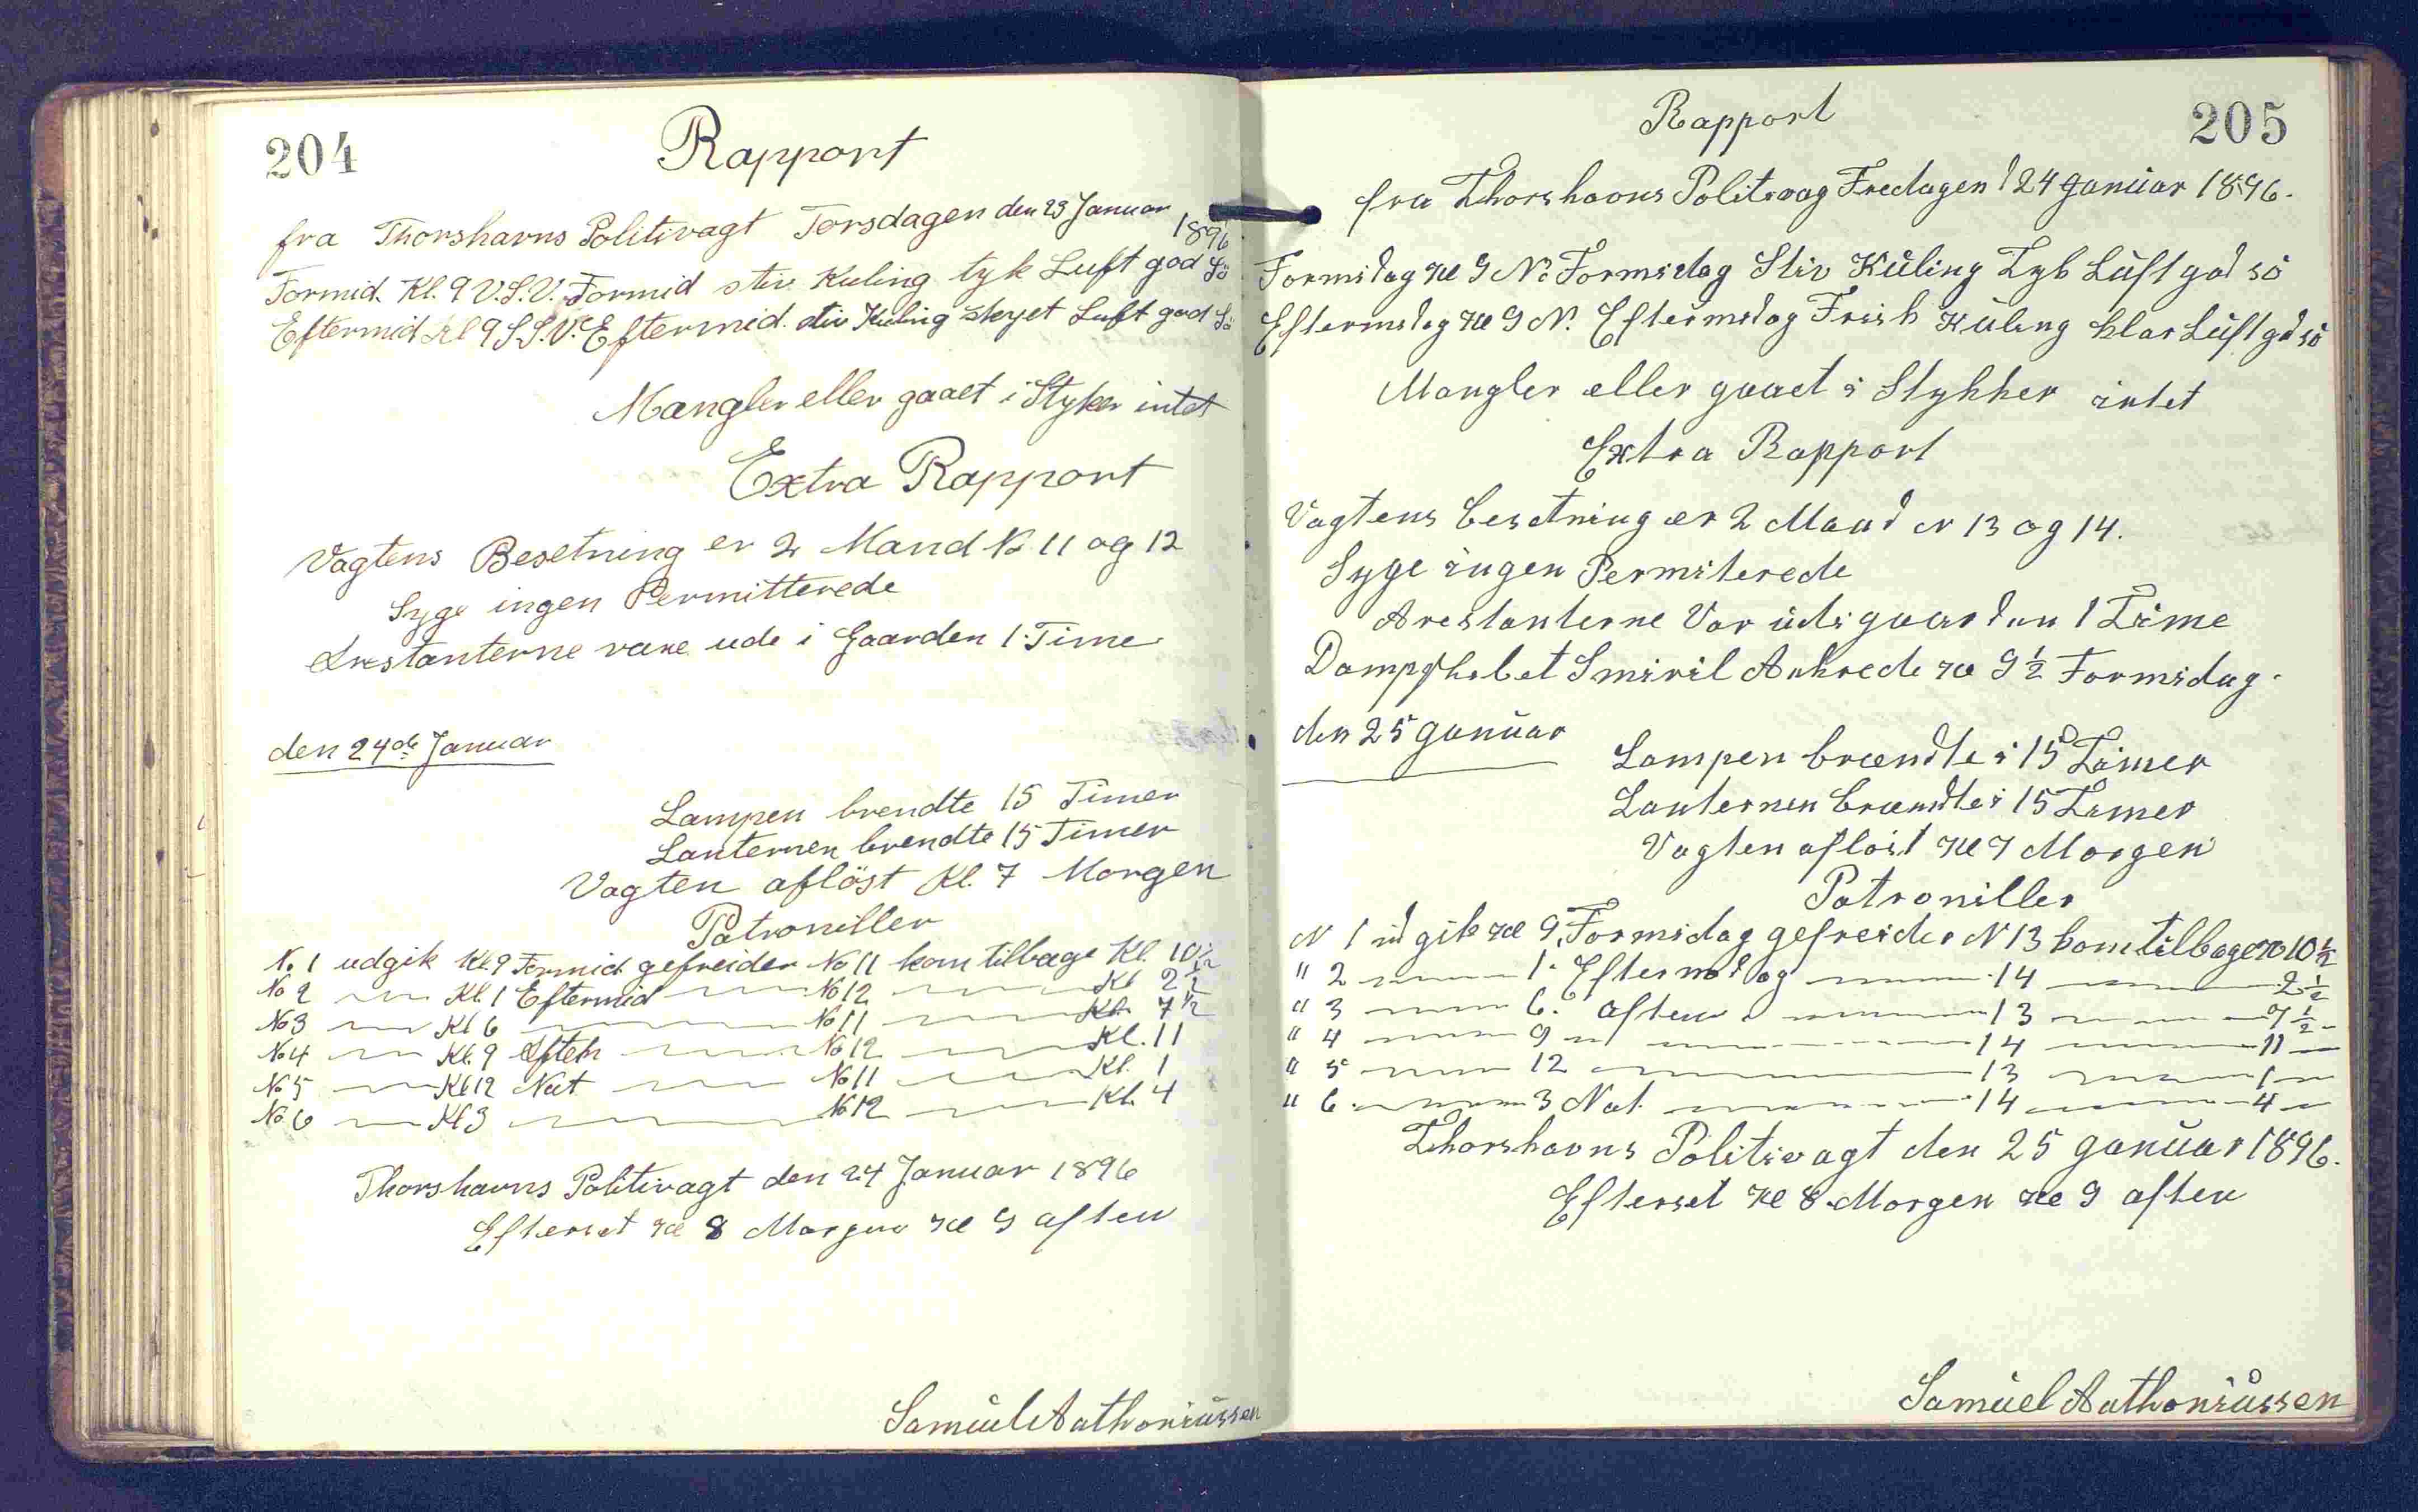 204
Rapport
fra Thorshavns Politivagt Torsdagen den 23 Januar 1896
Formid. Kl. 9 V.S.V. Formid stiv Kuling tyk Luft god Sö
Eftermid Kl 9 S.S.V. Eftermid. stiv Kuling skyet Luft god Sö
Mangler eller gaaet i Styker intet
Extra Rapport
Vagtens Besetning er 2 Mand No 11 og 12
Syge ingen Permitterede
Arestanterne vare ude i Gaarden 1 Time
den 24de Januar
Lampen brendte 15 Timer
Lanternen brendte 15 Timer
Vagten aflöst Kl. 7 Morgen
Patroniller
No. 1 udgik Kl. 9 Formid gefreider No 11 kom tilbage Kl. 10 1/2
No 2 — Kl. 1 Eftermid — No 12 — Kl 2 1/2
No 3 — Kl 6 — No 11 — Kl. 7 1/2
No 4 — Kl. 9 Aften — No 12 — Kl. 11
No 5 — Kl 12 Nat — No 11 — Kl. 1
No 6 — Kl 3 — No 12 — Kl. 4
Thorshavns Politivagt den 24 Januar 1896
Efterset Kl 8 Morgen Kl 9 aften
Samuel Anthoniussen
205
Rapport
fra Thorshavns Politivag Fredagen d 24 Januar 1896.
Formidag Kl 9 No Formidag Stiv Kuling Tyk Luft god sö
Eftermidag Kl 9 N. Eftermidag Frisk Kuling klar Luft god sö
Mangler eller gaaet i Stykker intet
Extra Rapport
Vagtens besetning er 2 Mand N 13 og 14.
Syge ingen Permiterede
Arestanterne Var udi gaarden 1 Time
Dampskibet Smiril Ankrede Kl 9 1/2 Formidag.
den 25 Januar
Lampen brændte i 15 Timer
Lanternen brændte i 15 Timer
Vagten aflöist Kl 7 Morgen
Patroniller
N 1 udgik Kl 9 Formidag gefreider N 13 kom tilbage Kl 10 1/2
" 2 — 1. Eftermidag — 14 — 2 1/2
" 3 — 6. aften — 13 — 7 1/2
" 4 — 9 — 14 — 11 —
" 5 — 12 — 13 — 1 —
" 6. — 3 Nat. — 14 — 4 —
Thorshavns Politivagt den 25 Januar 1896.
Efterset Kl 8 Morgen Kl 9 aften
Samuel Anthoniussen